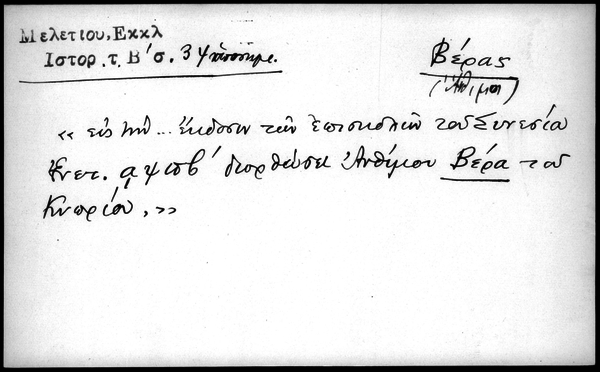 Μελετίου, Εκκλ
Ιστορ. τ. Β΄ σ. 34 υποσημ.
Βέρας
(Άνθιμος)
« εις την ... έκδοσιν των Επιστολών του Συνεσίου
Ενετ. αψϟβ΄ διορθώσει Ανθίμου Βέρα του
Κυπρίου. »